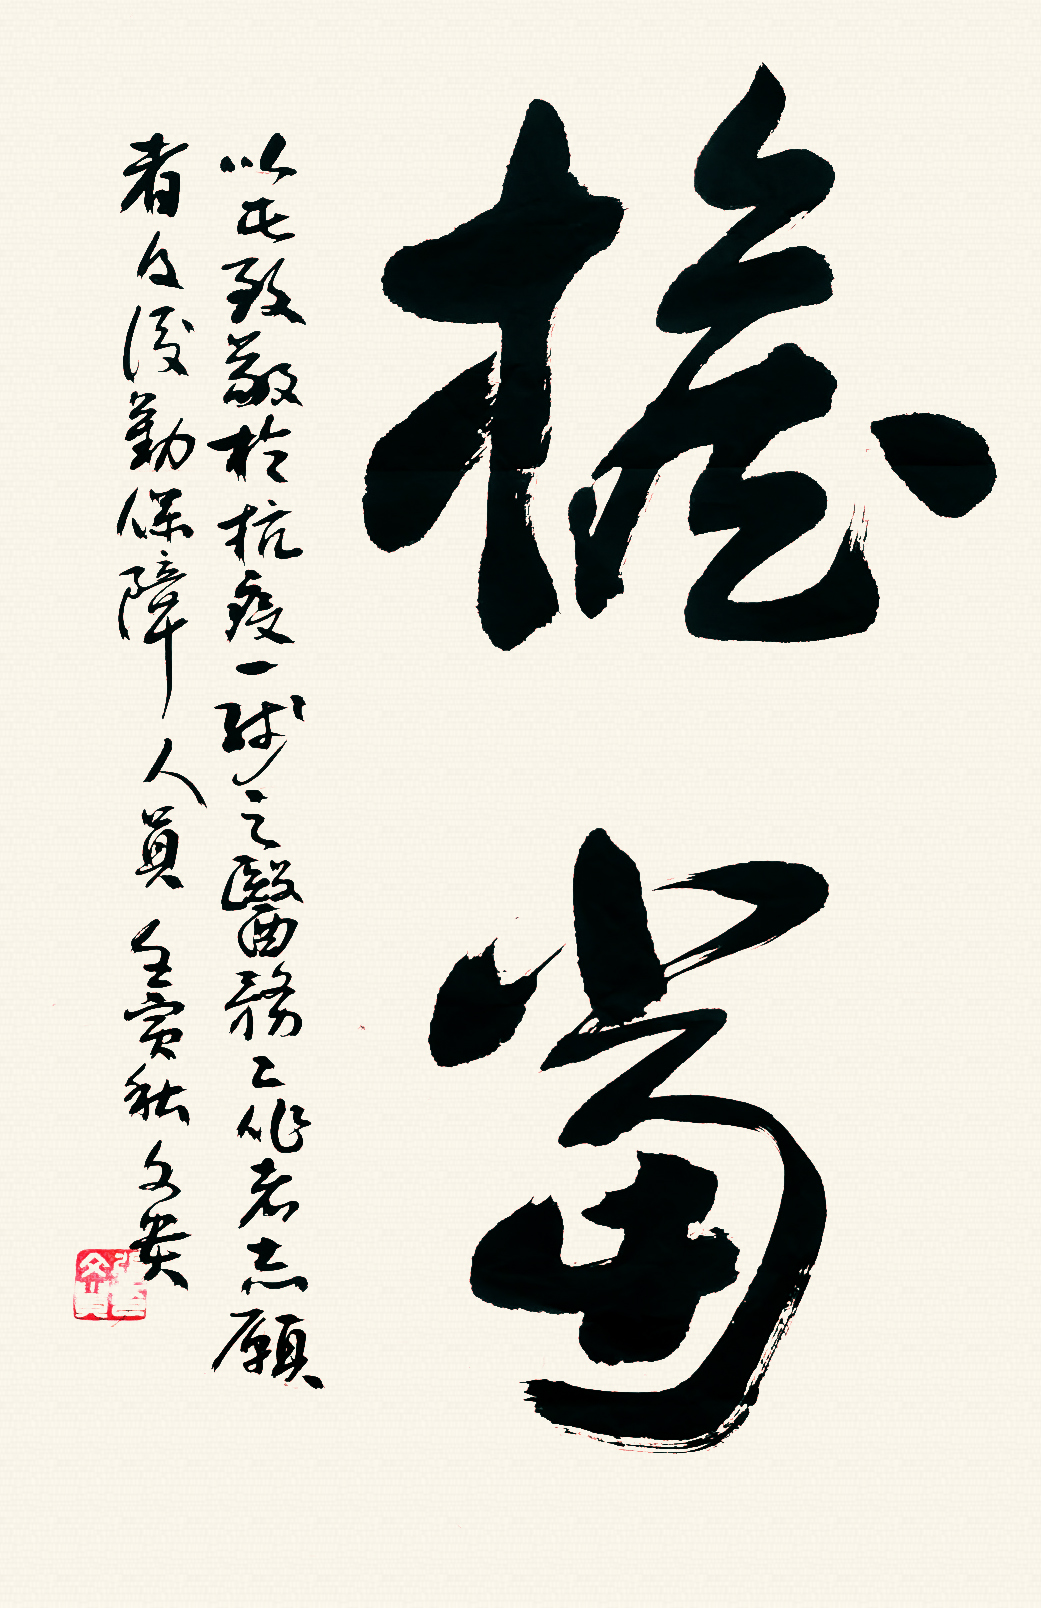 擔當
以此致敬於抗疫一線之醫務工作者志願
者及後勤保障人員 壬寅秋 文貴